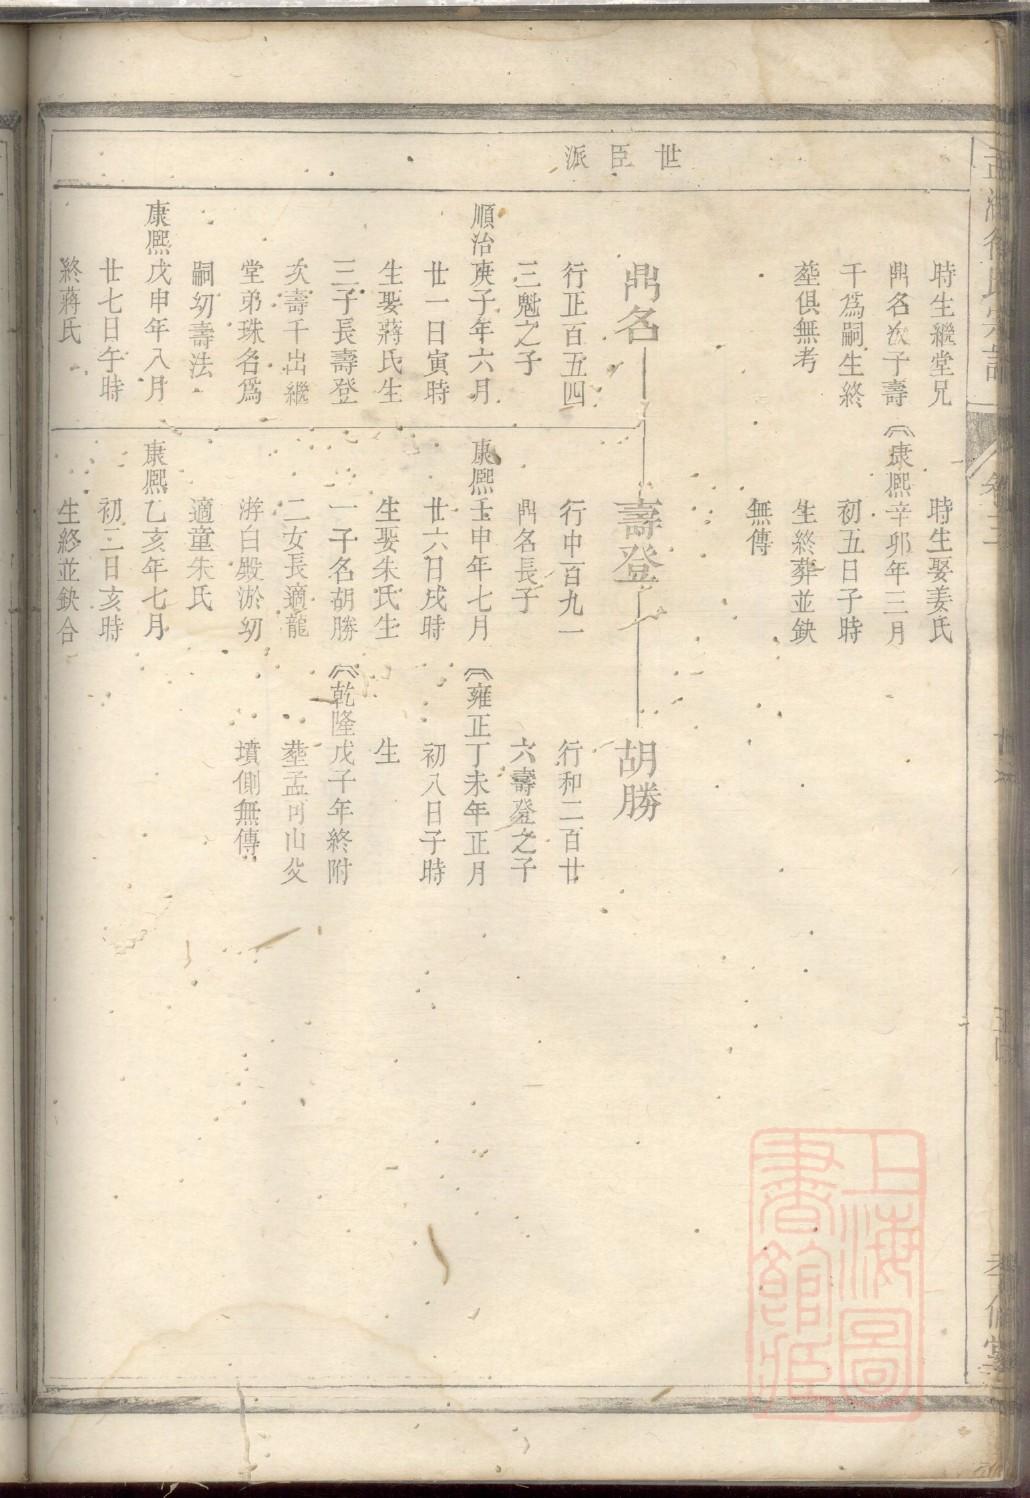 世臣派
時生繼堂兄
鼎名次子壽
千爲嗣生終
塟俱無考
時生娶姜氏
康熙辛卯年三月
初五日子時
生終葬並缺
無傳
鼎名
行正百五四
三魁之子
順治庚子年六月
廿一日寅時
生娶蔣氏生
三子長壽登
次壽千出繼
堂弟珠名爲
嗣幼壽法
康熙戊申年八月
廿七日午時
終蔣氏
壽登
行中百九一
鼎名長子
康熙壬申年七月
廿六日戌時
生娶朱氏生
一子名胡勝
二女長適龍
游白殿淤幼
適童朱氏
康熙乙亥年七月
初二日亥時
生終並缺合
胡勝
行和二百廿
六壽登之子
雍正丁未年正月
初八日子時
生
乾隆戊子年終附
塟孟可山父
墳側無傳
卷三
上海圖
書館藏